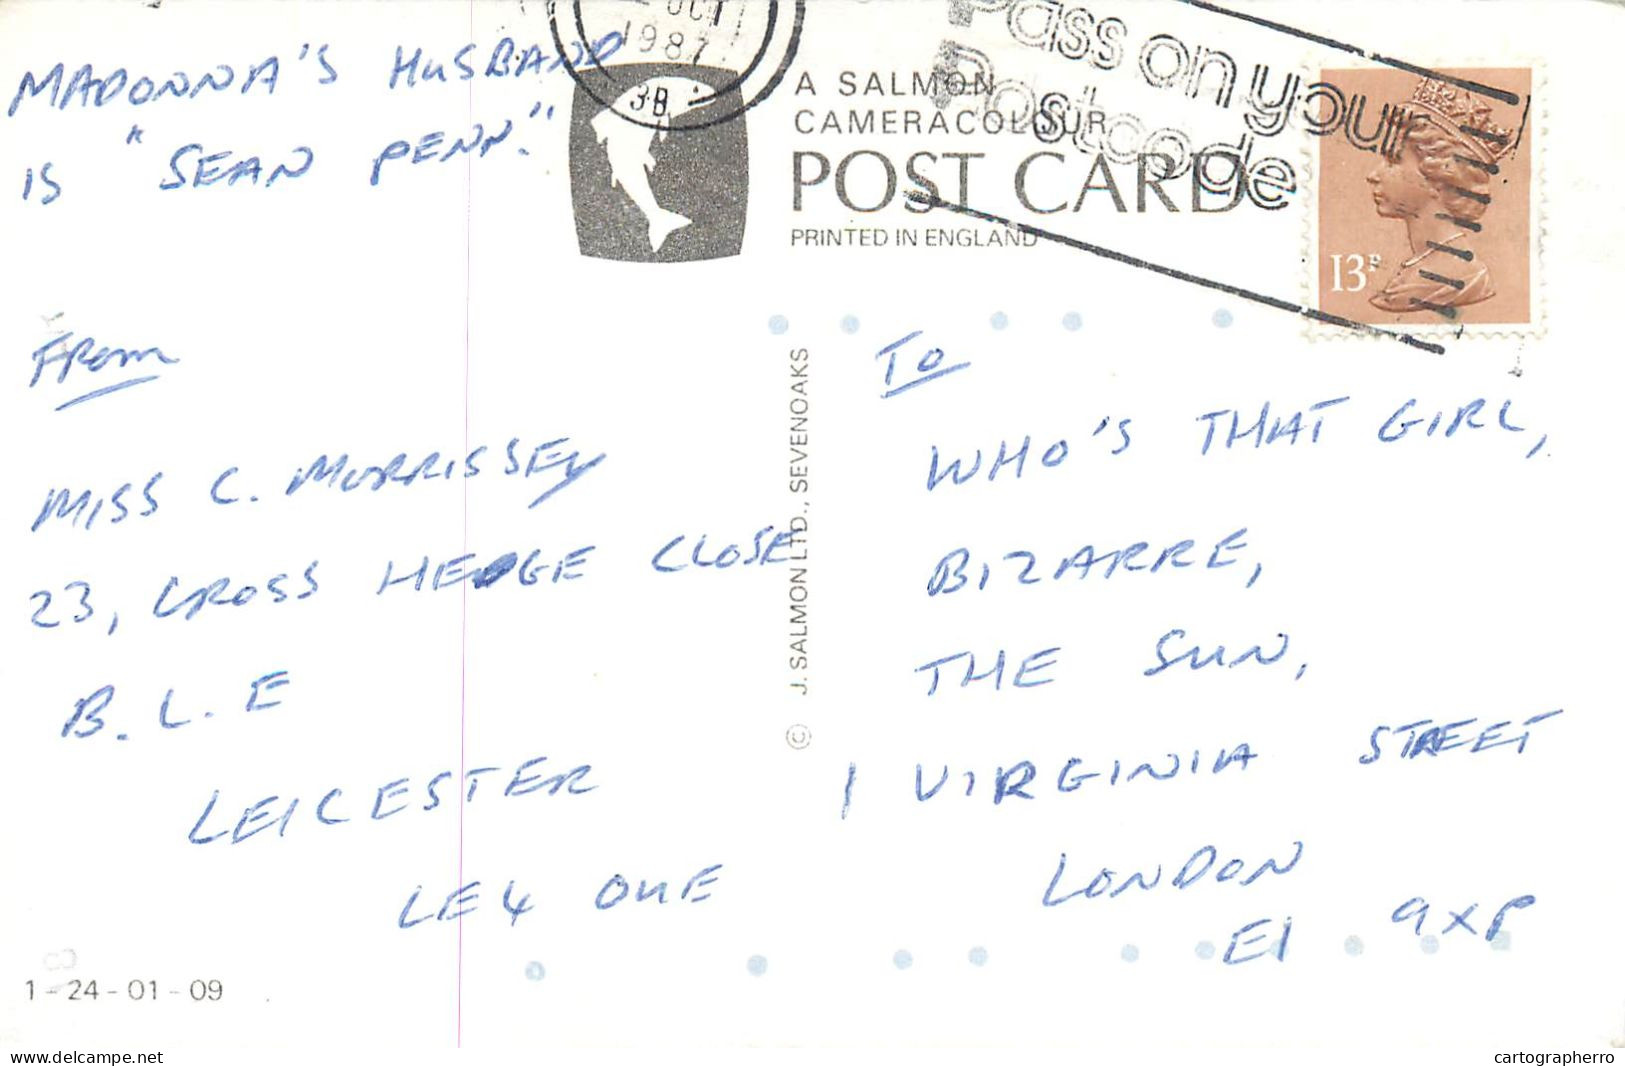 MADONNA'S HUSBAND
IS "SEAN PENN."
OCT
1987
A SALMON
CAMERACOLOUR
POST CARD
PRINTED IN ENGLAND
Pass on your
Postcode
13P
From
MISS C. MORRISSEY
23, CROSS HEDGE CLOSE
B.L.E
LEICESTER
LE4 OUE
© J. SALMON LTD., SEVENOAKS
To
WHO'S THAT GIRL,
BIZARRE,
THE SUN,
1 VIRGINIA STREET
LONDON
E1 9XP
1-24-01-09
delcampe.net
cartographerro